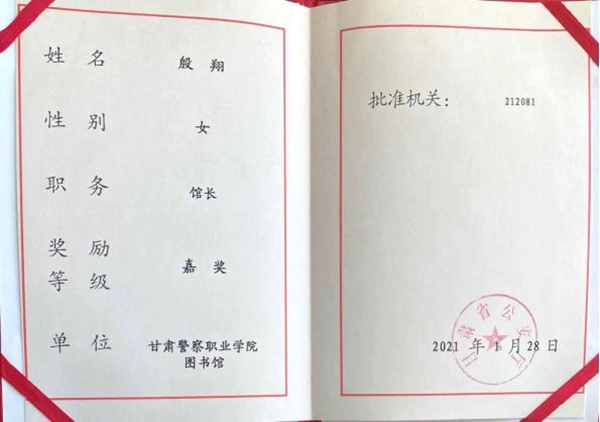 姓名 殷翔
性别 女
职务 馆长
奖励
等级 嘉奖
单位 甘肃警察职业学院
图书馆
批准机关： 212081
甘肃省公安厅
2021 年 1 月 28 日